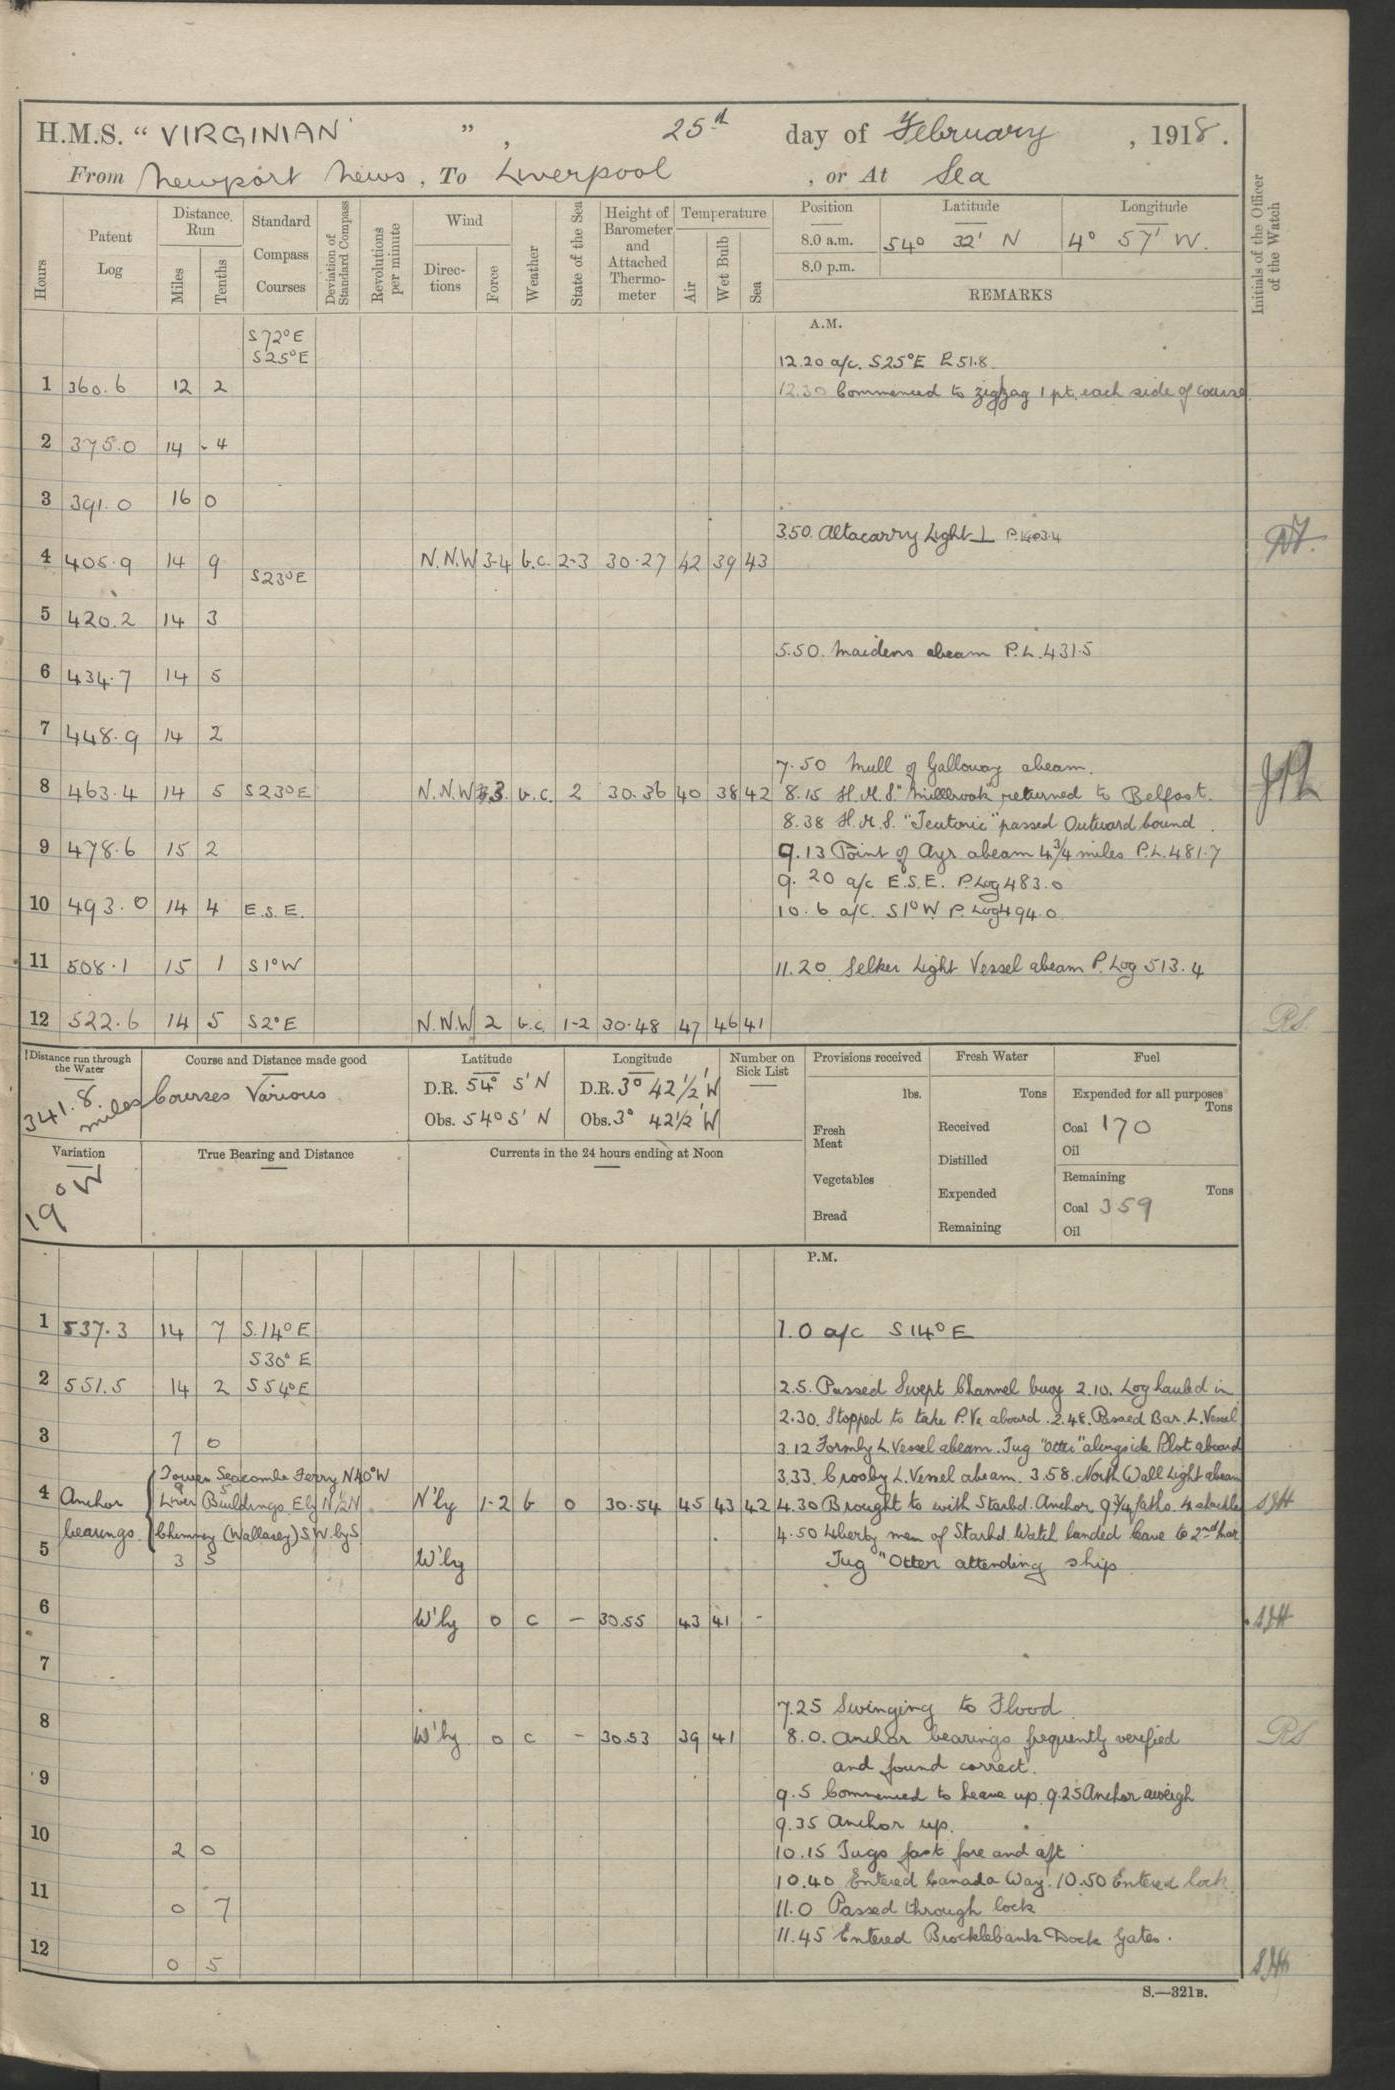 H.M.S. "VIRGINIAN", 25th day of February, 1918.
From Newport News, To Liverpool, or At Sea
Hours
Patent Log
Distance Run
Miles
Tenths
Standard Compass Courses
Deviation of Standard Compass
Revolutions per minute
Wind
Direc-tions
Force
Weather
State of the Sea
Height of Barometer and Attached Thermo-meter
Temperature
Air
Wet Bulb
Sea
Position Latitude Longitude
8.0 a.m. 54° 32' N 4° 57' W.
8.0 p.m.
REMARKS
Initials of the Officer of the Watch
A.M.
S 72° E
S 25° E 12.20 a/c. S25°E PL 51.8
1 360.6 12 2 12.30 Commenced to zigzag 1 pt. each side of course
2 375.0 14 .4
3 391.0 16 0
3.50. Altacarry Light ⊥ P.403.4
4 405.9 14 9 N.N.W 3-4 b.c. 2-3 30.27 42 39 43
S23°E
5 420.2 14 3
5.50. Maidens abeam P.L. 431.5
6 434.7 14 5
7 448.9 14 2
7.50 Mull of Galloway abeam.
8 463.4 14 5 S23°E N.N.W 3 b.c. 2 30.36 40 38 42 8.15 H.M.S. "Millbrook" returned to Belfast.
8.38 H.M.S. "Teutonic" passed Outward bound.
9 478.6 15 2 9.13 Point of Ayr abeam 4 3/4 miles P.L. 481.7
9.20 a/c E.S.E. P.Log 483.0
10 493.0 14 4 E.S.E. 10.6 a/c. S1°W P. Log 494.0
11 508.1 15 1 S1°W 11.20 Selker Light Vessel abeam P. Log 513.4
12 522.6 14 5 S2°E N.N.W 2 b.c. 1-2 30.48 47 46 41 RS
Distance run through the Water
341.8. miles
Course and Distance made good
Courses Various
Latitude
D.R. 54° 5' N
Obs. 54° 5' N
Longitude
D.R. 3° 42 1/2' W
Obs. 3° 42 1/2' W
Number on Sick List
Provisions received
lbs.
Fresh Meat
Vegetables
Bread
Fresh Water
Tons
Received
Distilled
Expended
Remaining
Fuel
Expended for all purposes
Tons
Coal 170
Oil
Remaining
Tons
Coal 359
Oil
Variation
19° W
True Bearing and Distance
Currents in the 24 hours ending at Noon
P.M.
1 537.3 14 7 S.14°E 1.0 a/c S 14° E
S30° E
2 551.5 14 2 S 54°E 2.5. Passed Swept Channel buoy 2.10. Log hauled in
2.30. Stopped to take P.V. aboard. 2.48. Passed Bar. L. Vessel
3 7 0 3.12 Formby L. Vessel abeam. Tug "Otter" alongside Pilot aboard
Tower Seacombe Ferry N40°W 3.33. Crosby L. Vessel abeam. 3.58. North Wall Light abeam
4 Anchor Liver Buildings. Ely N 1/2 N N'ly 1-2 b 0 30.54 45 43 42 4.30 Brought to with Starbd. Anchor 9 3/4 faths. 4 shackles SJH
bearings. Chimney (Wallasey) S W. by S 4.50 Liberty men of Starbd Watch landed leave to 2nd
5 3 5 W'ly Tug "Otter attending ship
6 W'ly 0 c - 30.55 43 41 - SJH
7
7.25 Swinging to Flood.
8 W'ly 0 c - 30.53 39 41 8.0. Anchor bearings frequently verified RS
and found correct.
9
9.5 Commenced to heave up. 9.25 Anchor aweigh
9.35 Anchor up.
10 2 0 10.15 Tugs fast fore and aft
10.40 Entered Canada Way. 10.50 Entered lock.
11 0 7 11.0 Passed through lock
11.45 Entered Brocklebank Dock Gates.
12 0 5 SJH
S.—321B.